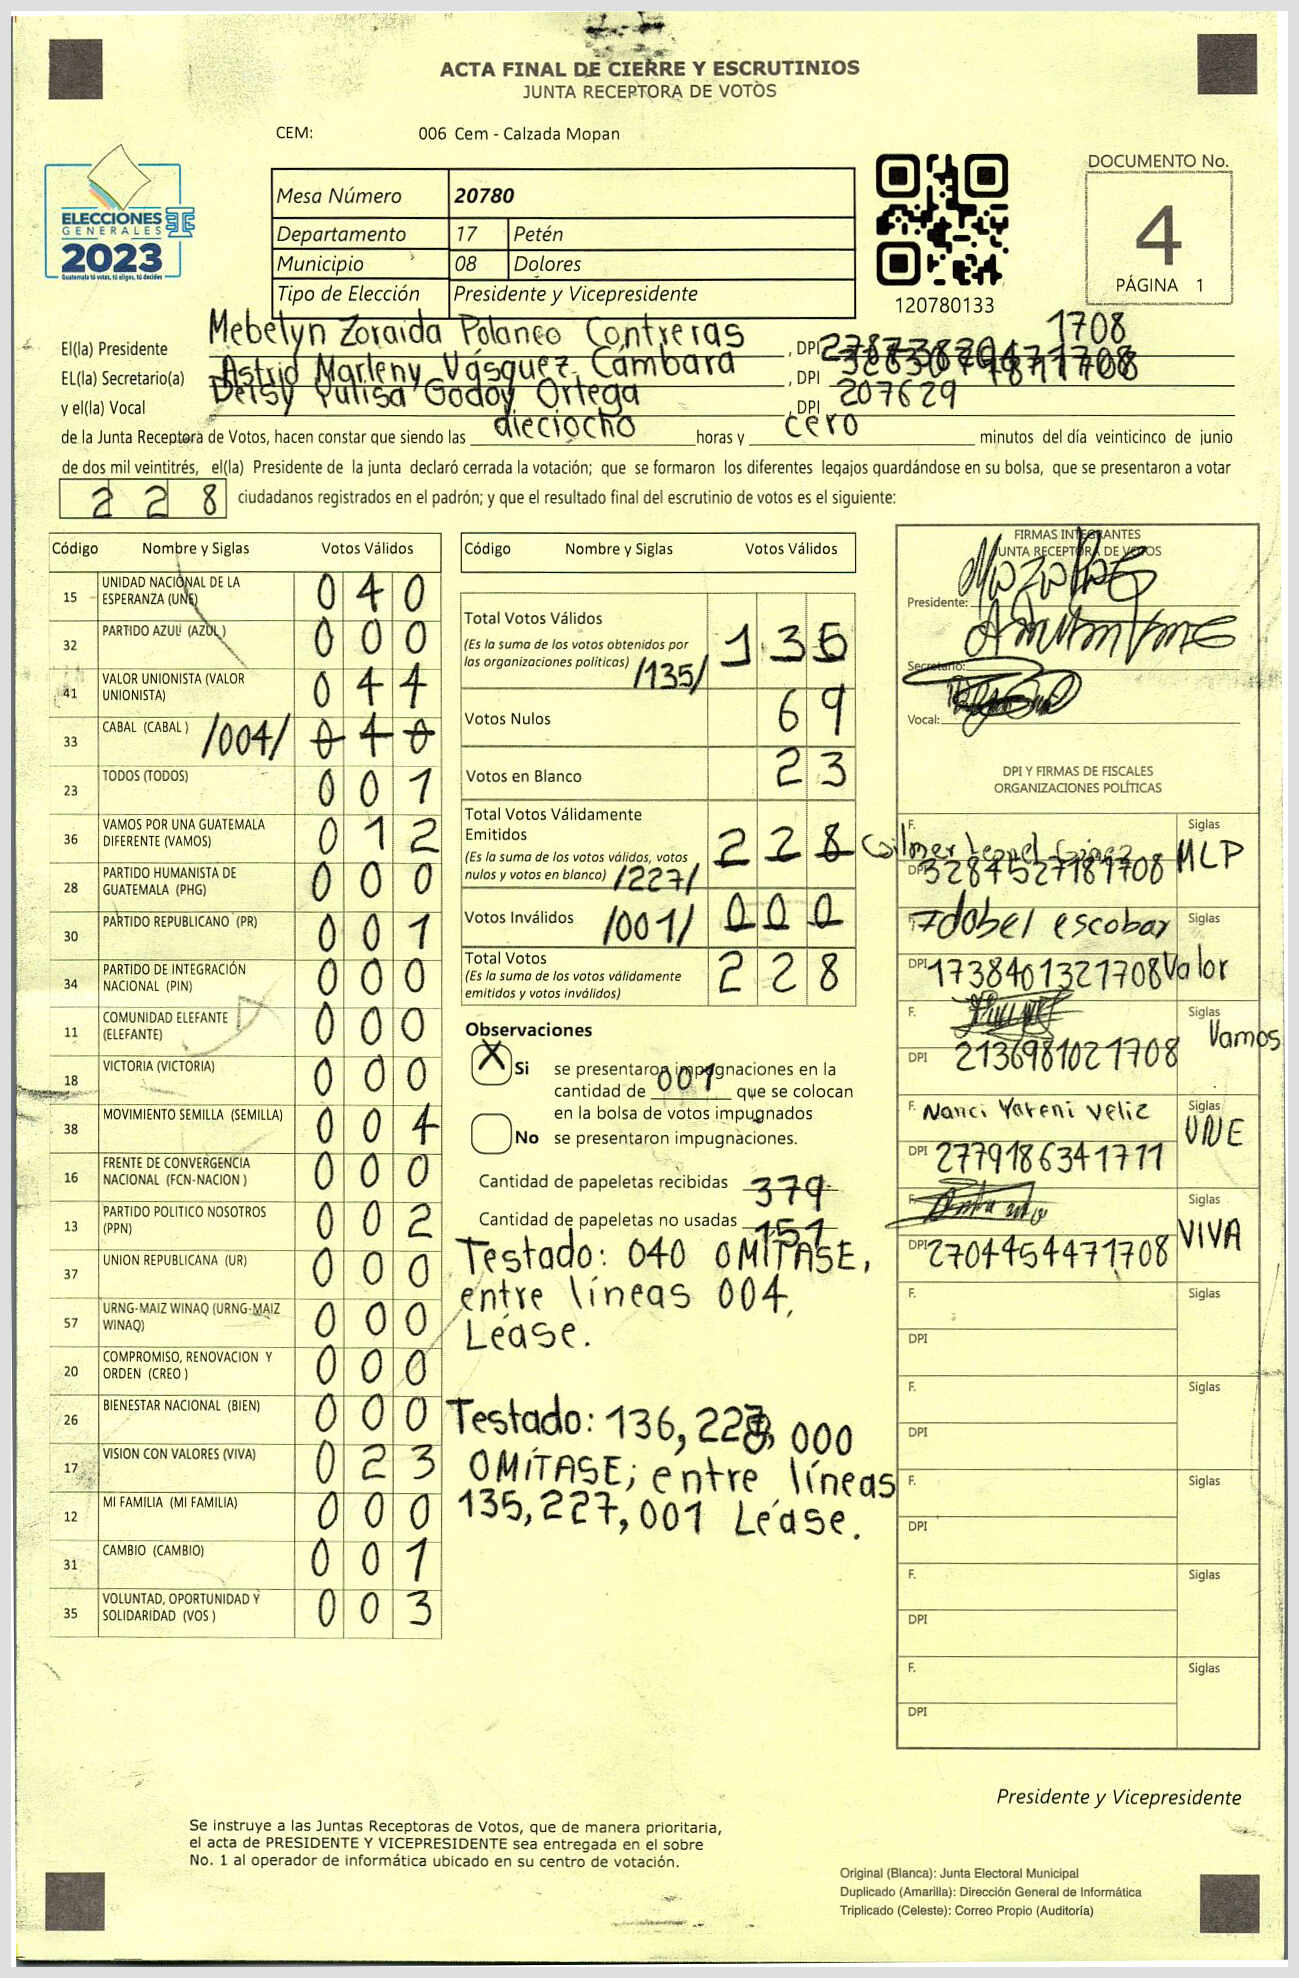 ACTA FINAL DE CIERRE Y ESCRUTINIOS
JUNTA RECEPTORA DE VOTOS
CEM: 006 Cem - Calzada Mopan
ELECCIONES
GENERALES
2023
Guatemala tú votas, tú eliges, tú decides
Mesa Número 20780
Departamento 17 Petén
Municipio 08 Dolores
Tipo de Elección Presidente y Vicepresidente
120780133
DOCUMENTO No.
4
PÁGINA 1
El(la) Presidente Mebelyn Zoraida Polanco Contreras, DPI 1708
EL(la) Secretario(a) Astrid Marleny Vásquez Cambara, DPI
y el(la) Vocal Deisy Yulisa Godoy Ortega, DPI 207629
de la Junta Receptora de Votos, hacen constar que siendo las dieciocho horas y cero minutos del día veinticinco de junio
de dos mil veintitrés, el(la) Presidente de la junta declaró cerrada la votación; que se formaron los diferentes legajos guardándose en su bolsa, que se presentaron a votar
228 ciudadanos registrados en el padrón; y que el resultado final del escrutinio de votos es el siguiente:
Código Nombre y Siglas Votos Válidos
15 UNIDAD NACIONAL DE LA ESPERANZA (UNE) 0 4 0
32 PARTIDO AZUL (AZUL) 0 0 0
41 VALOR UNIONISTA (VALOR UNIONISTA) 0 4 4
33 CABAL (CABAL) /004/ 0 4 0
23 TODOS (TODOS) 0 0 1
36 VAMOS POR UNA GUATEMALA DIFERENTE (VAMOS) 0 1 2
28 PARTIDO HUMANISTA DE GUATEMALA (PHG) 0 0 0
30 PARTIDO REPUBLICANO (PR) 0 0 1
34 PARTIDO DE INTEGRACIÓN NACIONAL (PIN) 0 0 0
11 COMUNIDAD ELEFANTE (ELEFANTE) 0 0 0
18 VICTORIA (VICTORIA) 0 0 0
38 MOVIMIENTO SEMILLA (SEMILLA) 0 0 4
16 FRENTE DE CONVERGENCIA NACIONAL (FCN-NACION) 0 0 0
13 PARTIDO POLITICO NOSOTROS (PPN) 0 0 2
37 UNION REPUBLICANA (UR) 0 0 0
57 URNG-MAIZ WINAQ (URNG-MAIZ WINAQ) 0 0 0
20 COMPROMISO, RENOVACION Y ORDEN (CREO) 0 0 0
26 BIENESTAR NACIONAL (BIEN) 0 0 0
17 VISION CON VALORES (VIVA) 0 2 3
12 MI FAMILIA (MI FAMILIA) 0 0 0
31 CAMBIO (CAMBIO) 0 0 1
35 VOLUNTAD, OPORTUNIDAD Y SOLIDARIDAD (VOS) 0 0 3
Código Nombre y Siglas Votos Válidos
Total Votos Válidos
(Es la suma de los votos obtenidos por
las organizaciones políticas) /135/ 1 3 6
Votos Nulos 6 9
Votos en Blanco 2 3
Total Votos Válidamente
Emitidos
(Es la suma de los votos válidos, votos
nulos y votos en blanco) /227/ 2 2 8
Votos Inválidos /001/ 0 0 0
Total Votos
(Es la suma de los votos válidamente
emitidos y votos inválidos) 2 2 8
Observaciones
X Si se presentaron impugnaciones en la
cantidad de 001 que se colocan
en la bolsa de votos impugnados
No se presentaron impugnaciones.
Cantidad de papeletas recibidas 379
Cantidad de papeletas no usadas 151
Testado: 040 OMÍTASE,
entre líneas 004,
Léase.
Testado: 136, 228, 000
OMÍTASE; entre líneas
135, 227, 001 Léase.
FIRMAS INTEGRANTES
JUNTA RECEPTORA DE VOTOS
Presidente:
Secretario:
Vocal:
DPI Y FIRMAS DE FISCALES
ORGANIZACIONES POLÍTICAS
F. Leonel Siglas
DPI 3284527181708 MLP
F. escobar Siglas
DPI 1738401321708 Valor
F. Siglas
DPI 2136981021708 Vamos
F. Nanci Yareni Veliz Siglas
DPI 2779186341711 UNE
F. Siglas
DPI 2704454471708 VIVA
F. Siglas
DPI
F. Siglas
DPI
F. Siglas
DPI
F. Siglas
DPI
F. Siglas
DPI
Presidente y Vicepresidente
Se instruye a las Juntas Receptoras de Votos, que de manera prioritaria,
el acta de PRESIDENTE Y VICEPRESIDENTE sea entregada en el sobre
No. 1 al operador de informática ubicado en su centro de votación.
Original (Blanca): Junta Electoral Municipal
Duplicado (Amarilla): Dirección General de Informática
Triplicado (Celeste): Correo Propio (Auditoría)